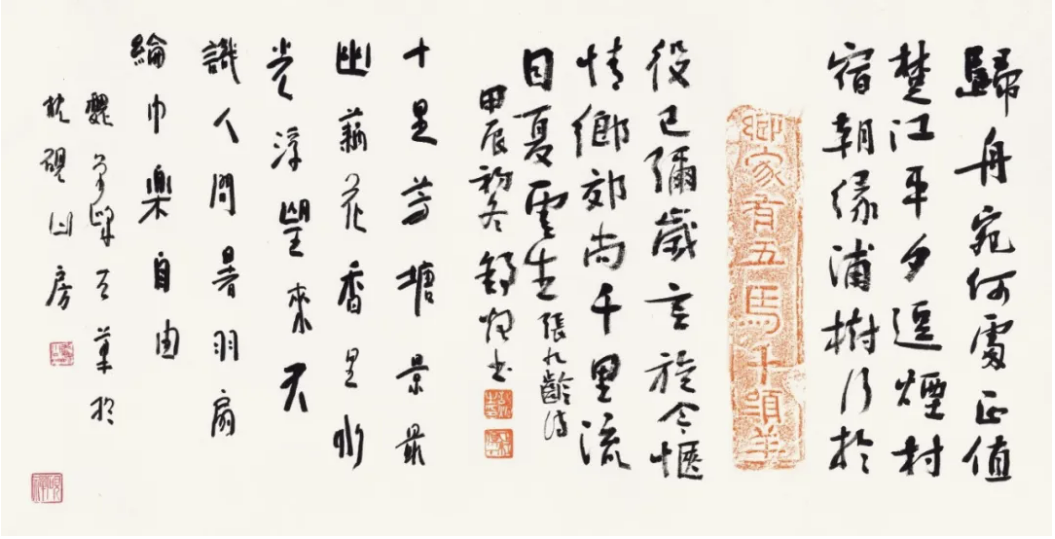 歸舟宛何處正值
楚江平夕逗煙村
宿朝緣浦樹行於
卿家有五馬千頭羊
役已彌歲言旋今愜
情鄉郊尚千里流
目夏雲生 張九齡詩
甲辰初冬 書
十里芳塘景最
幽藕花香里水
光浮望來不
識人間暑羽扇
綸巾樂自由
於
枕硯山房